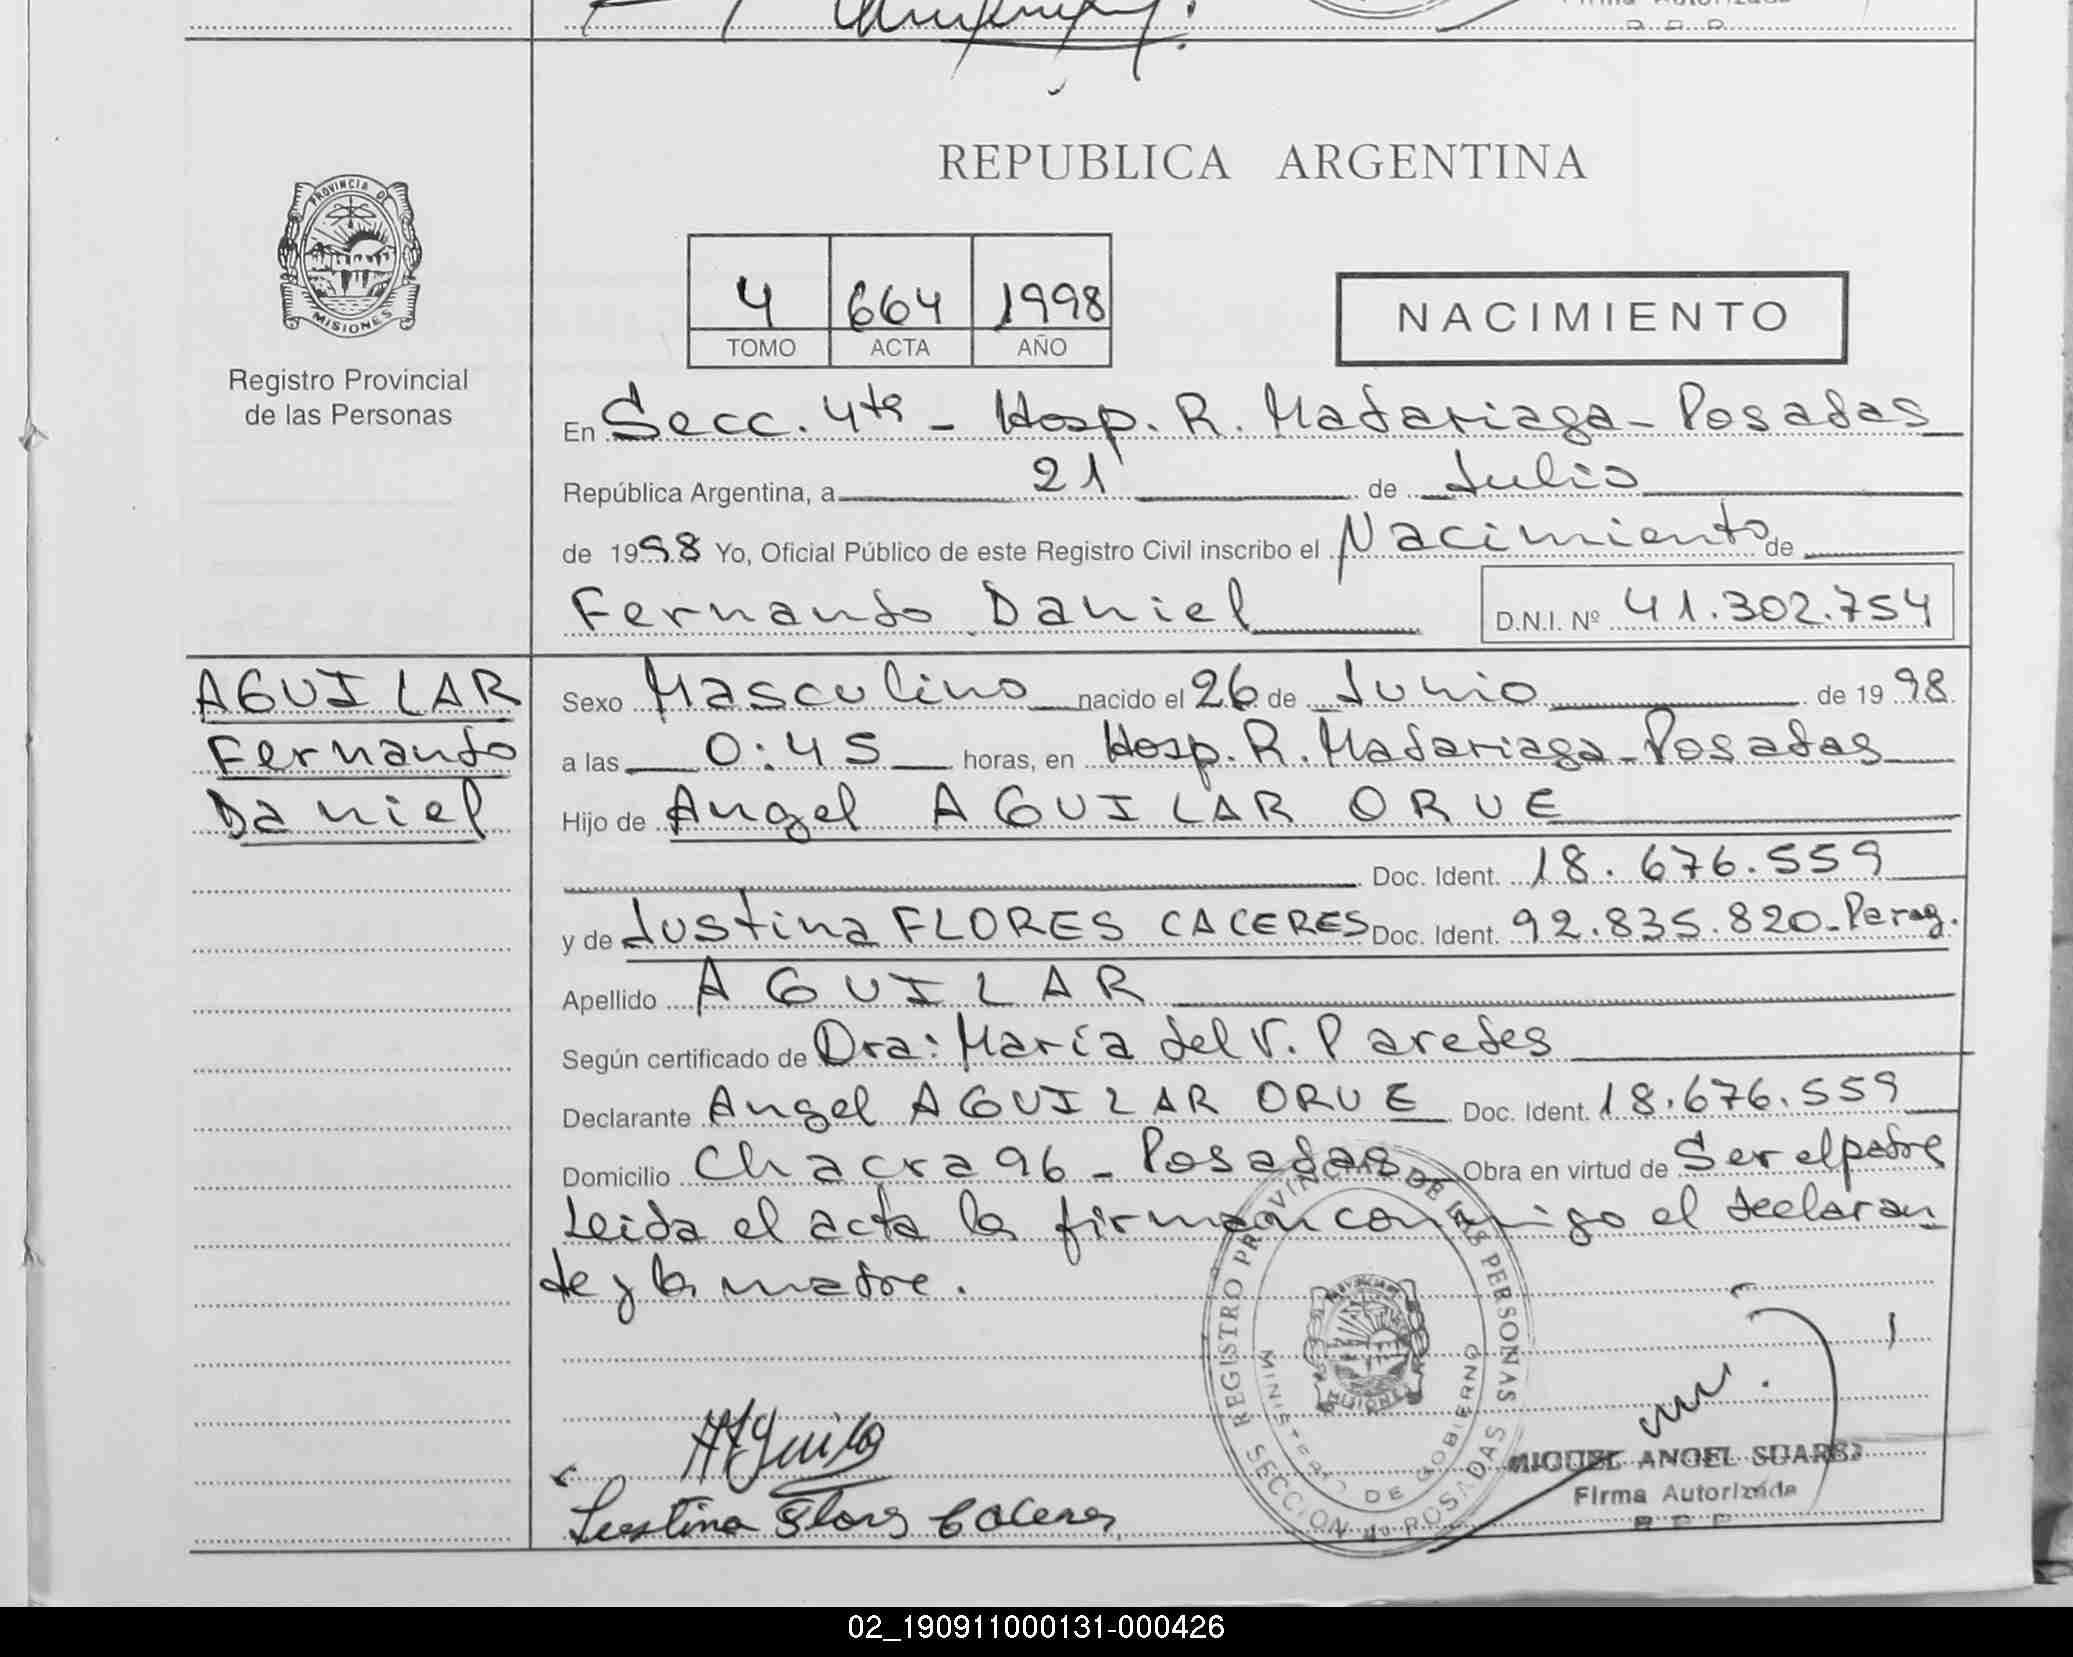 REPUBLICA ARGENTINA
PROVINCIA DE
MISIONES
Registro Provincial
de las Personas
4 664 1998
TOMO ACTA AÑO
NACIMIENTO
En Secc. 4ta - Hosp. R. Madariaga - Posadas
República Argentina, a 21 de Julio
de 1998 Yo, Oficial Público de este Registro Civil inscribo el Nacimiento de
Fernando Daniel D.N.I. Nº 41.302.754
AGUILAR
Fernando
Daniel
Sexo Masculino nacido el 26 de Junio de 1998
a las 0:45 horas, en Hosp. R. Madariaga - Posadas
Hijo de Angel AGUILAR ORUE
Doc. Ident. 18.676.559
y de Justina FLORES CACERES Doc. Ident. 92.835.820 - Parag.
Apellido AGUILAR
Según certificado de Dra: María del V. Paredes
Declarante Angel AGUILAR ORUE Doc. Ident. 18.676.559
Domicilio Chacra 96 - Posadas Obra en virtud de Ser el padre
Leida el acta la firman conmigo el declaran
te y la madre.
REGISTRO PROVINCIAL DE LAS PERSONAS
MINISTERIO DE GOBIERNO
SECCION 4ta POSADAS
MISIONES
Justina Flores Caceres
MIGUEL ANGEL SUAREZ
Firma Autorizada
02_190911000131-000426